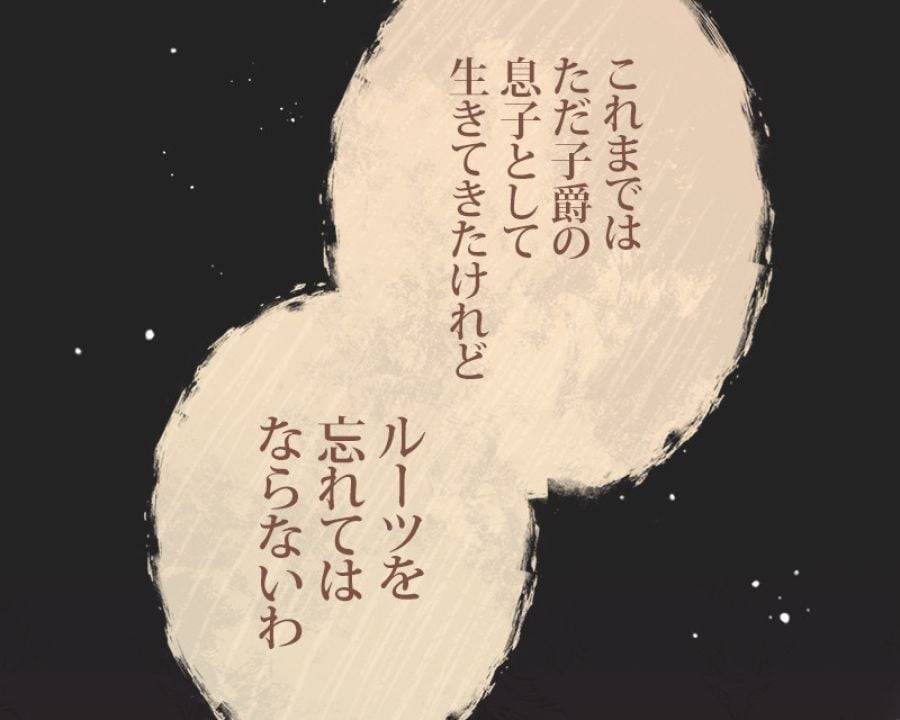 これまでは
ただ子爵の
息子として
生きてきたけれど
ルーツを
忘れては
ならないわ